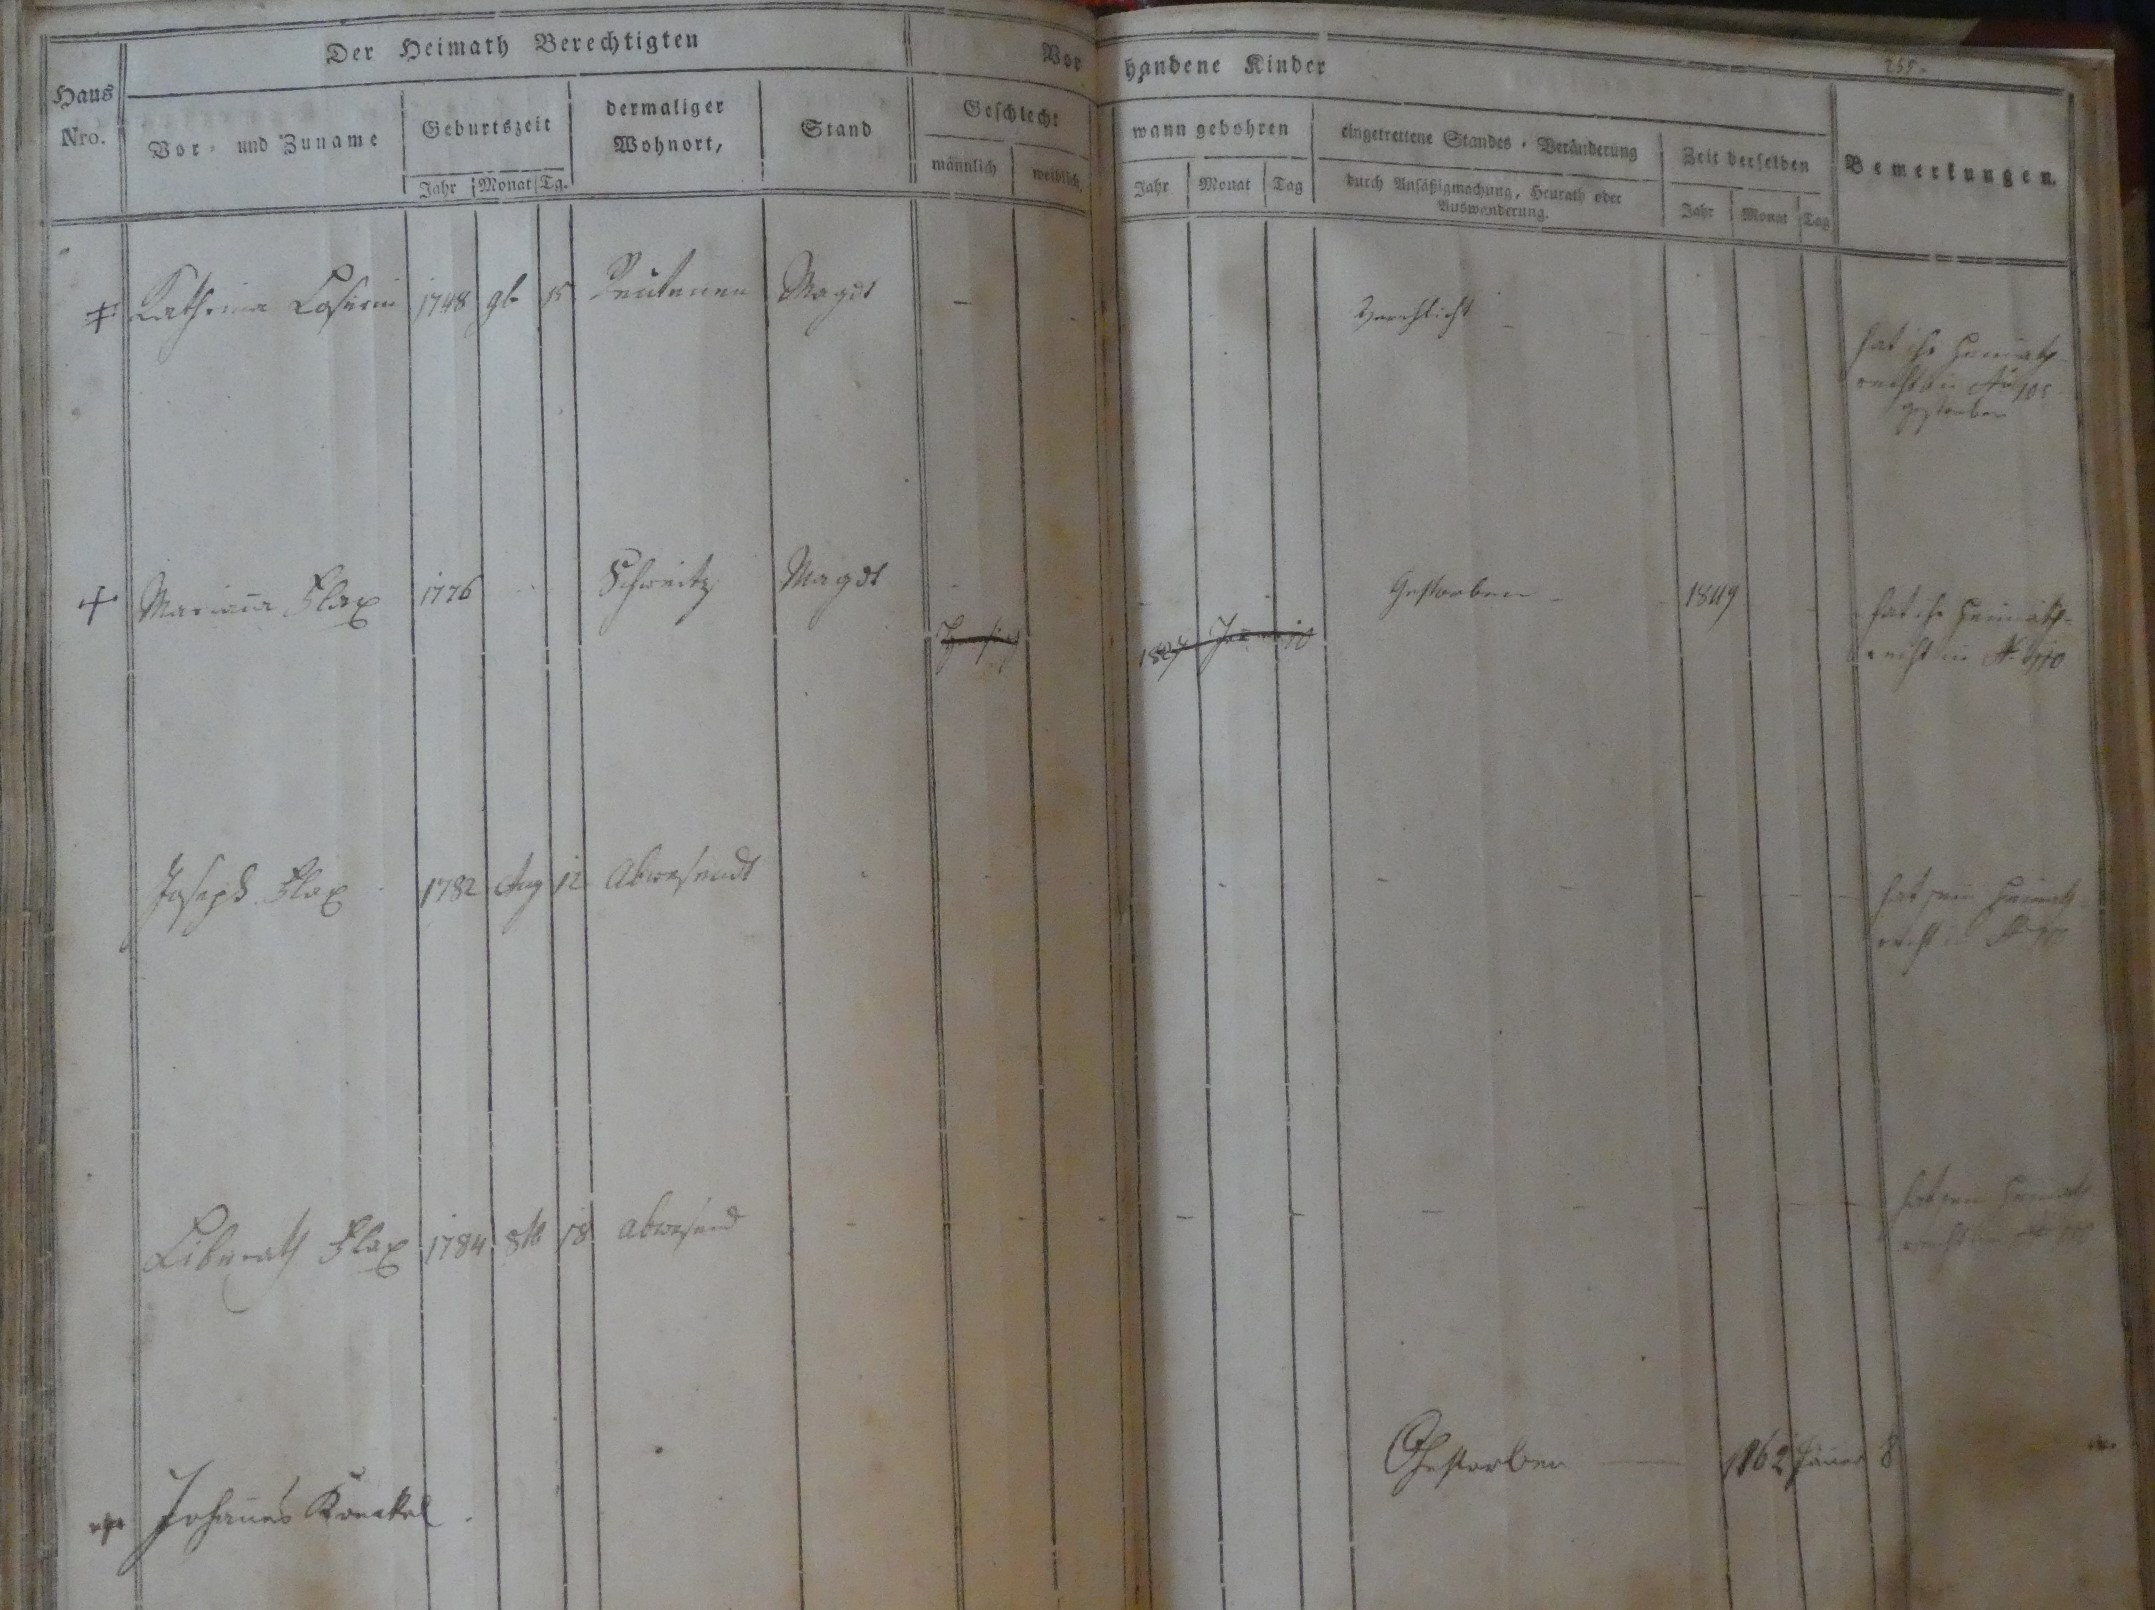 255.
Der Heimath Berechtigten
Vorhandene Kinder
Haus Nro.
Vor- und Zuname
Geburtszeit
Jahr Monat Tg.
dermaliger Wohnort,
Stand
Geschlecht
männlich weiblich,
wann gebohren
Jahr Monat Tag
eingetrettene Standes-Veränderung
durch Ansäßigmachung, Heurath oder
Auswanderung.
Zeit derselben
Jahr Monat Tag
Bemerkungen.
Kathrina 1748 9b 15 Magdt
Verehlicht
hat ihr Heimath-
recht in
gestorben
Mariana Flax 1776 Schweitz Magdt
Gestorben 1849
hat ihr Heimath-
recht in No 110
1824 10
Joseph Flax 1782 Aug 12 Abwesendt
hat sein Heimath-
recht in No
Liberath Flax 1784 8tb 18 abwesend
hat sein Heimath
recht in No
Johannes
Gestorben 1862 Jäner 8